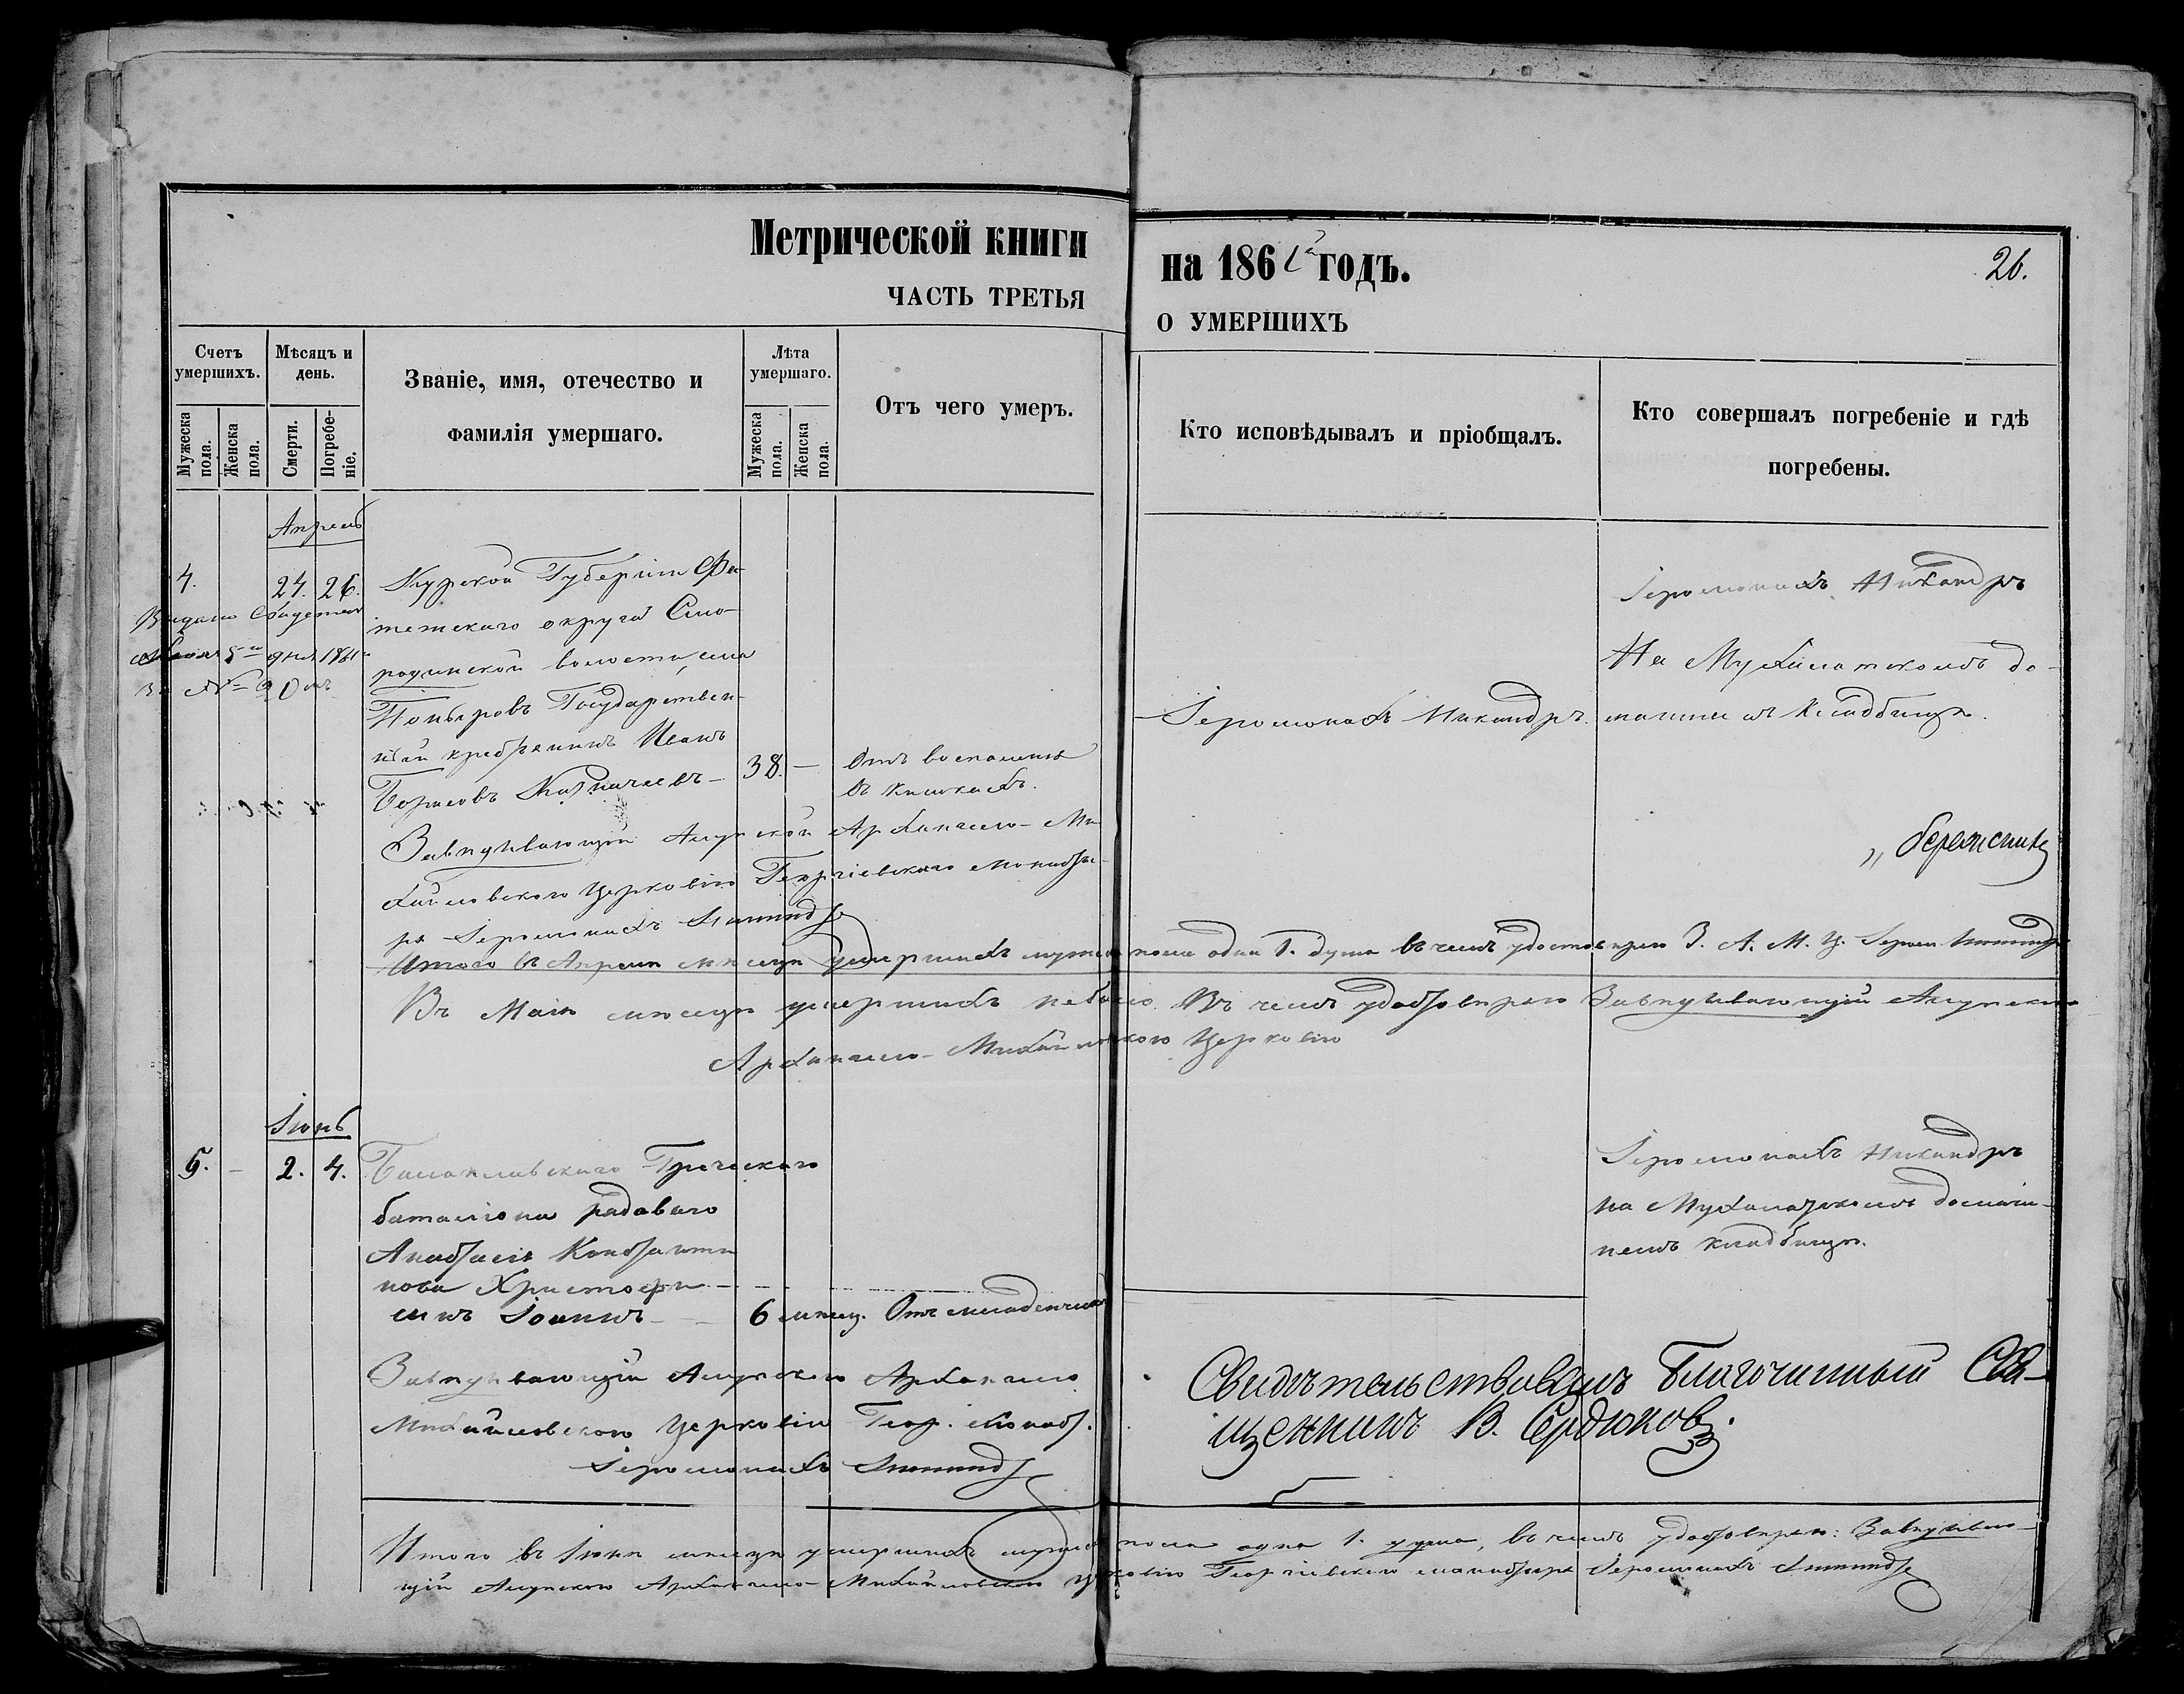 Метрической книги
на 1861й годъ.
26.
ЧАСТЬ ТРЕТЬЯ
О УМЕРШИХЪ
Счетъ умершихъ.
Мужеска пола.
Женска пола.
Мѣсяцъ и день.
Смерти.
Погребе-
ніе.
Званіе, имя, отечество и
фамилія умершаго.
Лѣта умершаго.
Мужеска пола.
Женска пола.
Отъ чего умеръ.
Кто исповѣдывалъ и пріобщалъ.
Кто совершалъ погребеніе и гдѣ
погребены.
Апрель
4. 24. 26.
Выдано
дня 1861
за №
Курской Губерніи Фа-
тежскаго округа Смо-
родинской волости, села
Государствен-
ный крестьянинъ Иванъ
Борисовъ 38. —
Отъ воспаленія
въ кишкахъ.
Іеромонахъ Никандръ.
Іеромонахъ Никандръ
На Мухалатскомъ до-
машнемъ кладбище.
Завѣдывающій Алупской Архангело-Ми-
хайловскою Церковію Георгіевскаго монасты-
ря Іеромонахъ Никандръ
Итого въ Апреле месяце умершихъ мужеска пола одна 1. душа въ чемъ удостоверяю З. А. М. Ц. Іером. Никандръ
Въ Маіе месяце умершихъ небыло. Въ чемъ удостоверяю Завѣдывающій Алупскою
Архангело-Михайловскою Церковію
Іюнь
5. — 2. 4.
Балаклавскаго Греческаго
баталіона рядоваго
Анастасія Константи
нова Христофи
сынъ Іоаннъ — 6 месяц. Отъ младенческой
Іеромонахъ Никандръ
на Мухалатскомъ домаш-
немъ кладбище.
Завѣдывающій Алупскою Архангело
Михайловскою Церковію Геор. Монаст.
Іеромонахъ Никандръ
Свидѣтельствовалъ Благочинный Свя-
щенникъ В. Сердюковъ.
Итого въ Іюне месяце умершихъ мужеска пола одна 1. душа, въ чемъ удостоверяю: Завѣдываю-
щій Алупскою Архангело-Михайловскою Церковію Георгіевскаго монастыря Іеромонахъ Никандръ